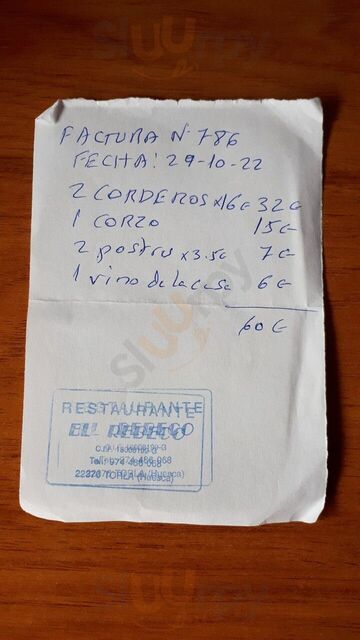 sluurpy
FACTURA Nº 786
FECHA: 29-10-22
2 CORDEROS x16€ 32€
1 CORZO 15€
2 postres x 3.5€ 7€
1 vino de la casa 6€
60€
RESTAURANTE
EL REBECO
Tel. 974 486 068
22376 TORLA (Huesca)